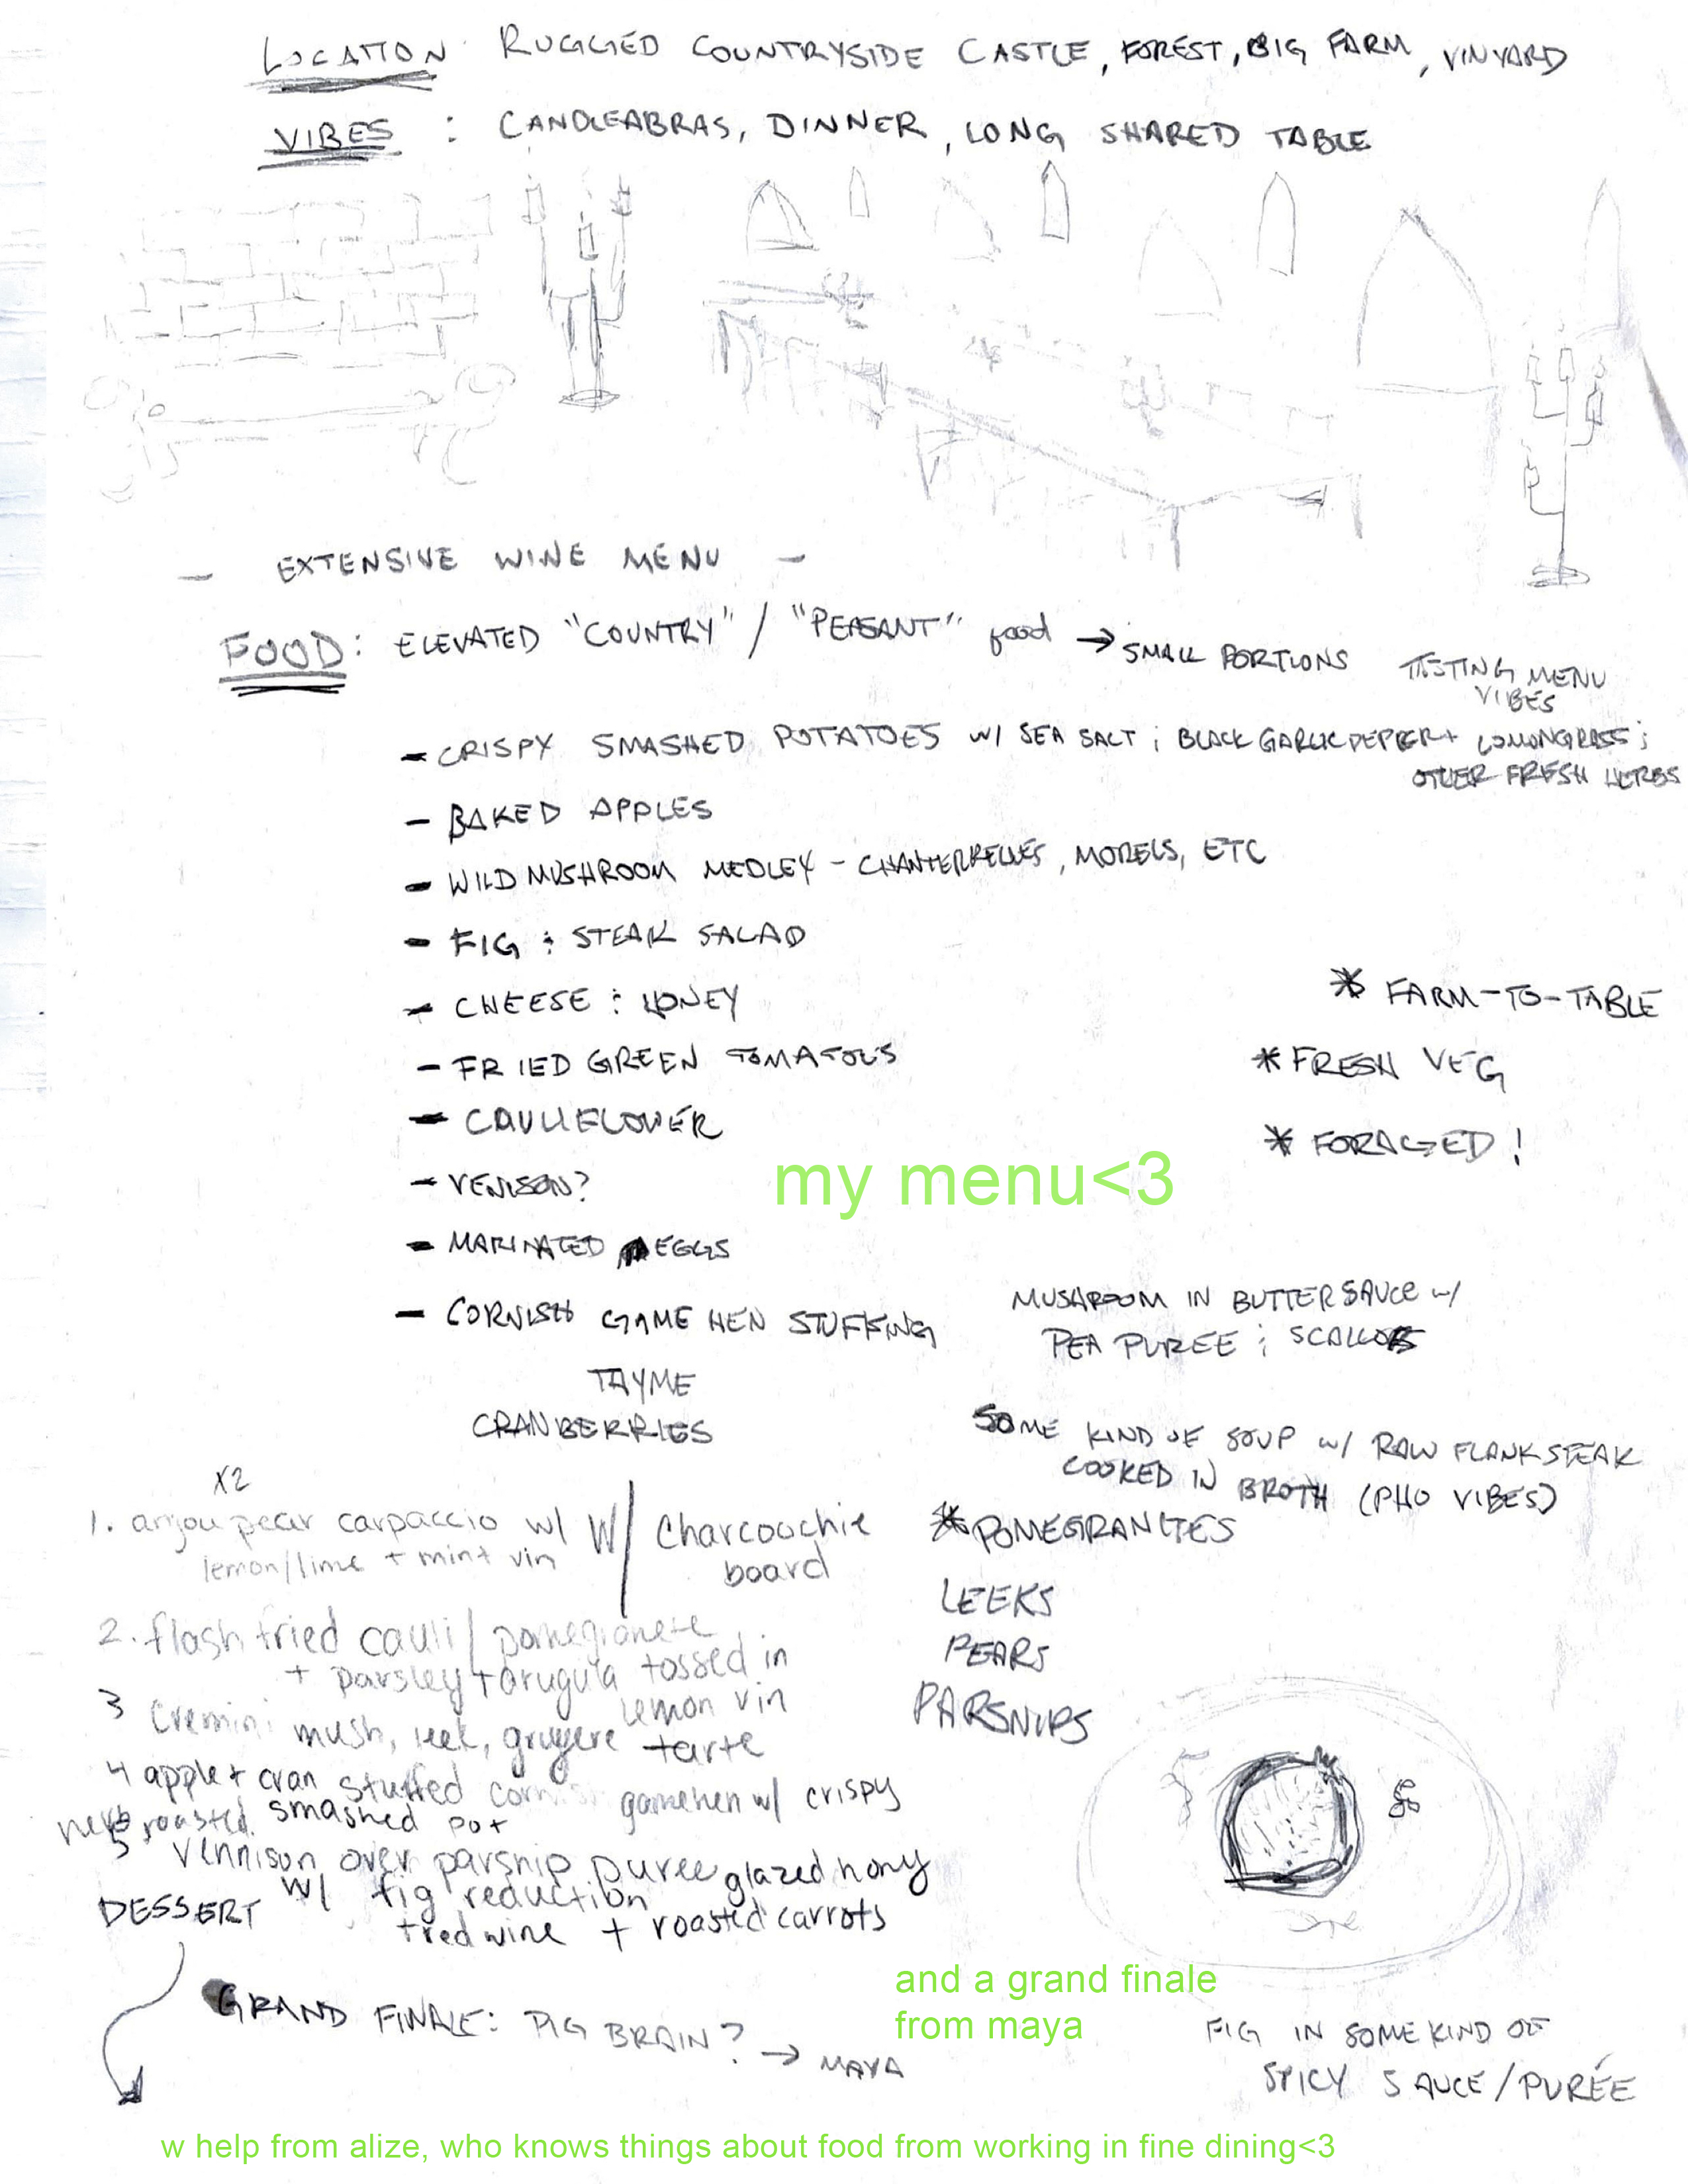 LOCATION: RUGGED COUNTRYSIDE CASTLE, FOREST, BIG FARM, VINYARD
VIBES : CANDLEABRAS, DINNER, LONG SHARED TABLE
- EXTENSIVE WINE MENU -
FOOD: ELEVATED "COUNTRY" / "PEASANT" food → SMALL PORTIONS TASTING MENU
VIBES
- CRISPY SMASHED POTATOES W/ SEA SALT ; BLACK GARLIC PEPPER + LEMONGRASS ;
OTHER FRESH HERBS
- BAKED APPLES
- WILD MUSHROOM MEDLEY - CHANTERRELLES, MORELS, ETC
- FIG ; STEAK SALAD
- CHEESE ; HONEY
- FRIED GREEN TOMATOES
- CAULIFLOWER
- VENISON?
- MARINATED EGGS
- CORNISH GAME HEN STUFFING
TAYME
CRANBERRIES
* FARM-TO-TABLE
* FRESH VEG
* FORAGED !
my menu<3
MUSHROOM IN BUTTER SAUCE W/
PEA PUREE ; SCALLOPS
SOME KIND OF SOUP W/ RAW FLANK STEAK
COOKED IN BROTH (PHO VIBES)
* POMEGRANITES
LEEKS
PEARS
PARSNIPS
X2
1. anjou pear carpaccio w/ W/ Charcoochie
lemon/lime + mint vin board
2. flash fried cauli / pomegranete
+ parsley + arugula tossed in
lemon vin
3 Cremini mush, leek, gruyere tarte
4 apple + cran stuffed cornish gamehen w/ crispy
herb roasted smashed pot
5 vennison over parsnip puree glazed hony
w/ fig reduction
+ red wine + roasted carrots
DESSERT
GRAND FINALE: PIG BRAIN? → MAYA
and a grand finale
from maya
FIG IN SOME KIND OF
SPICY SAUCE/PURÉE
w help from alize, who knows things about food from working in fine dining<3